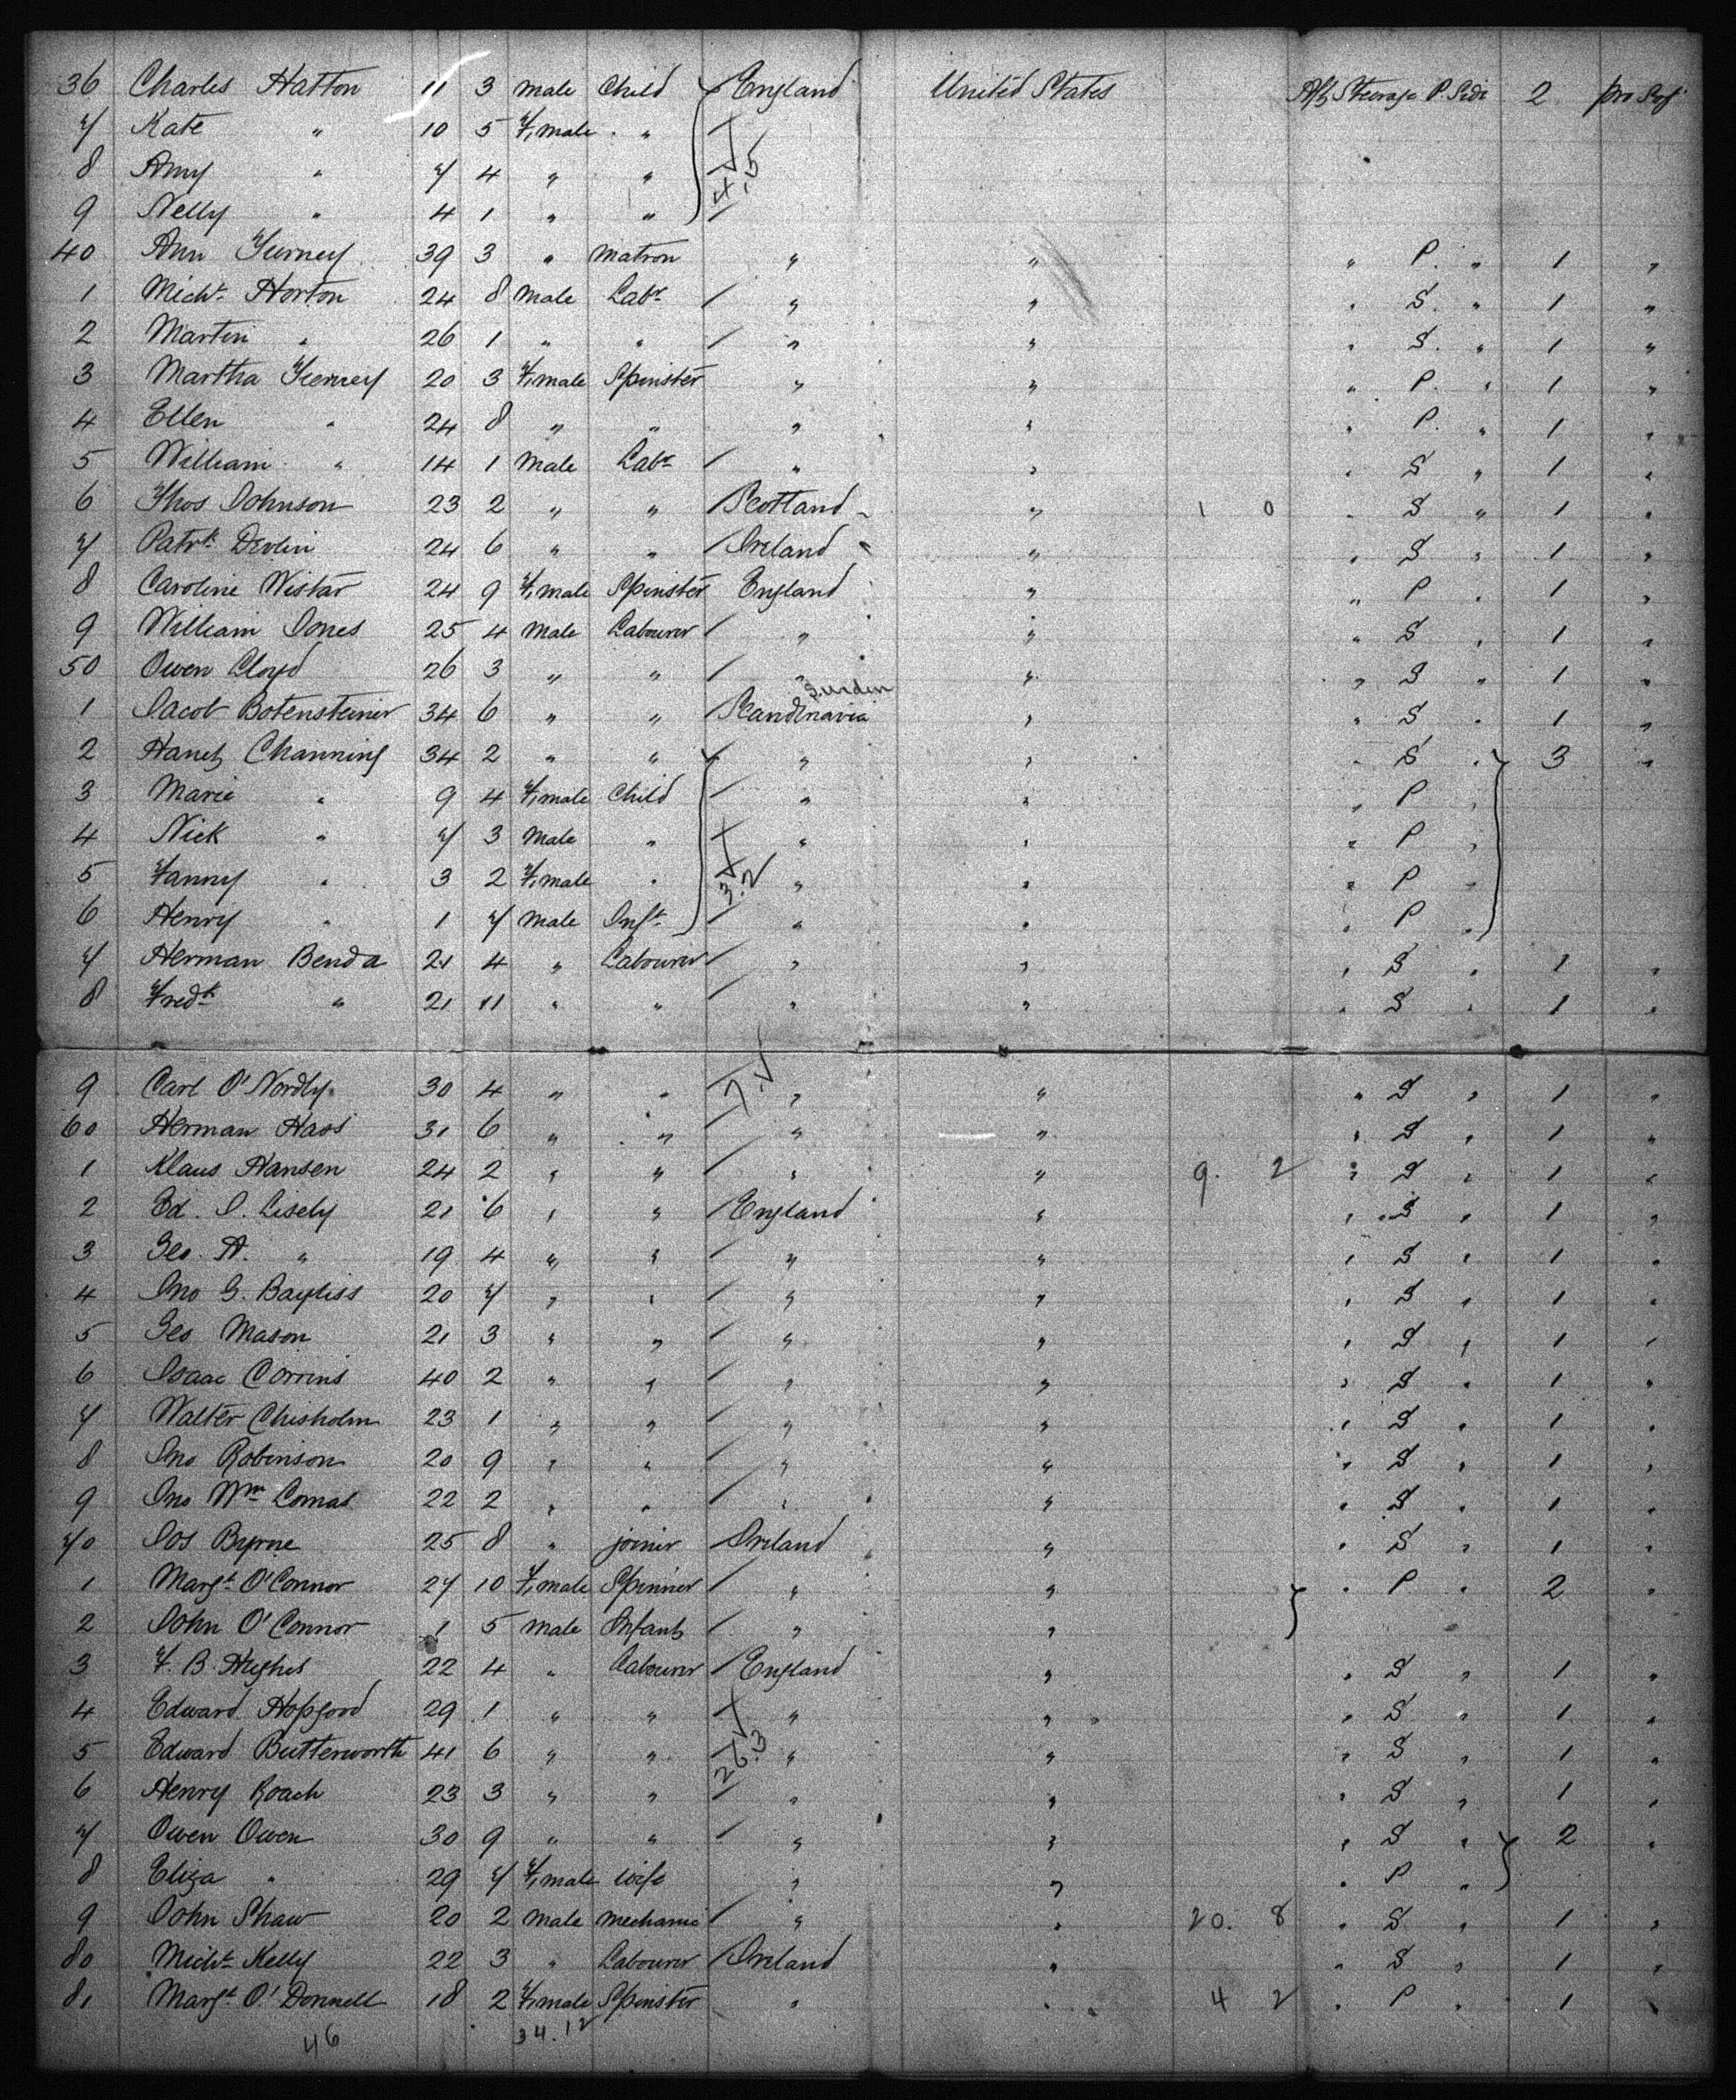 36 Charles Hatton 11 3 male Child England United States Aft Steerage P. Side 2 pro Soj
7 Kate " 10 5 Female " "
8 Amy " 7 4 " "
9 Nelly " 4 1 " "
4.5
40 Ann Tierney 39 3 " Matron " " " P. " 1 "
1 Michl. Horton 24 8 Male Labr. " " " S. " 1 "
2 Martin " 26 1 " " " " " S. " 1 "
3 Martha Tierney 20 3 Female Spinster " " " P. " 1 "
4 Ellen " 24 8 " " " " " P. " 1 "
5 William " 14 1 Male Labr. " " " S " 1 "
6 Thos Johnson 23 2 " " Scotland " 1 0 " S " 1 "
7 Patrk. Devlin 24 6 " " Ireland " " S " 1 "
8 Caroline Wistar 24 9 Female Spinster England " " P " 1 "
9 William Jones 25 4 Male Labourer " " " S " 1 "
50 Owen Lloyd 26 3 " " " " " S " 1 "
Sweden
1 Jacob Botensteiner 34 6 " " Scandinavia " " S " 1 "
2 Hanch Channing 34 2 " " " " " S " 3 "
3 Marie " 9 4 Female Child " " " P "
4 Nick " 7 3 Male " " " " P "
5 Fanny " 3 2 Female " " " " P "
3.2
6 Henry " 1 7 Male Inft. " " " P "
7 Herman Benda 21 4 " Labourer " " " S " 1 "
8 Fredk " 21 11 " " " " " S " 1 "
9 Carl O'Nordly 30 4 " " " " " S " 1 "
7.
60 Herman Hass 31 6 " " " " " S " 1 "
1 Klaus Hansen 24 2 " " " " 9. 2 " S " 1 "
2 Ed. J. Lisely 21 6 " " England " " S " 1 "
3 Geo. A. " 19 4 " " " " " S " 1 "
4 Jno G. Bayliss 20 7 " " " " " S " 1 "
5 Geo Mason 21 3 " " " " " S " 1 "
6 Isaac Corrins 40 2 " " " " " S " 1 "
7 Walter Chisholm 23 1 " " " " " S " 1 "
8 Jno Robinson 20 9 " " " " " S " 1 "
9 Jno Wm Lomas 22 2 " " " " " S " 1 "
70 Jos Byrne 25 8 " joiner Ireland " " S " 1 "
1 Margt. O'Connor 27 10 Female Spinner " " " P " 2 "
2 John O'Connor 1 5 Male Infant " "
3 F. B. Hughes 22 4 " Labourer England " " S " 1 "
4 Edward Hopgood 29 1 " " " " " S " 1 "
5 Edward Butterworth 41 6 " " " " " S " 1 "
26.3
6 Henry Roach 23 3 " " " " " S " 1 "
7 Owen Owen 30 9 " " " " " S " 2 "
8 Eliza " 29 7 Female wife " " " P "
9 John Shaw 20 2 Male Mechanic " " 20. 8 " S " 1 "
80 Michl. Kelly 22 3 " Labourer Ireland " " S " 1 "
81 Margt. O'Donnell 18 2 Female Spinster " " 4 2 " P " 1 "
46 34.12